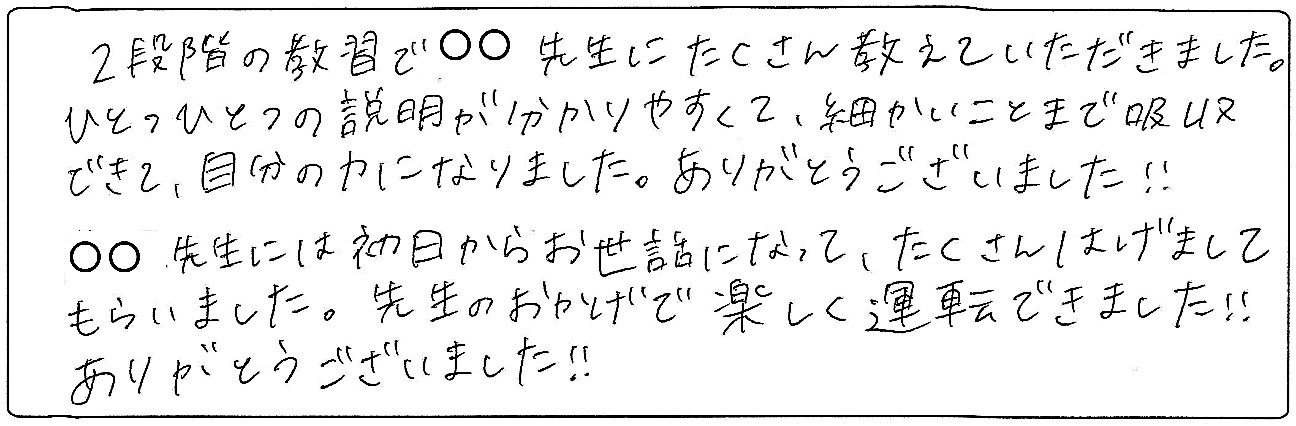 2段階の教習で○○先生にたくさん教えていただきました。
ひとつひとつの説明が分かりやすくて、細かいことまで吸収
できて、自分の力になりました。ありがとうございました!!
○○先生には初日からお世話になって、たくさんはげまして
もらいました。先生のおかげで楽しく運転できました!!
ありがとうございました!!